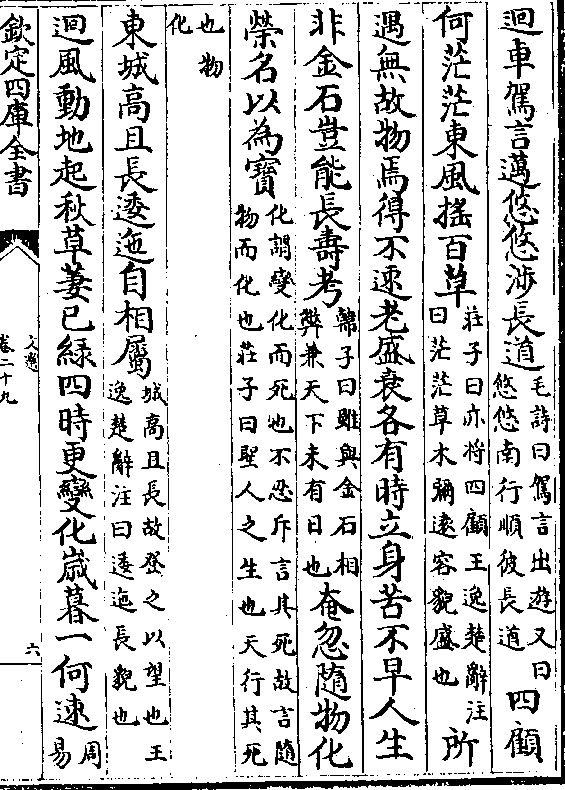 迴車駕言邁悠悠涉長道毛詩曰駕言出遊又曰悠悠南行順彼長道四顧
何茫茫東風搖百草莊子曰亦將四顧王逸楚辭注曰茫茫草木彌遠容貌盛也所
遇無故物焉得不速老盛衰各有時立身苦不早人生
非金石豈能長壽考韓子曰雖與金石相弊兼天下未有日也奄忽隨物化
榮名以為寶化謂變化而死也不忍斥言其死故言隨物而化也莊子曰聖人之生也天行其死
也物化
東城高且長逶迤自相屬城高且長故登之以望也王逸楚辭注曰逶迤長貌也
迴風動地起秋草萋已綠四時更變化歲暮一何速周易
欽定四庫全書
文選
卷二十九
六